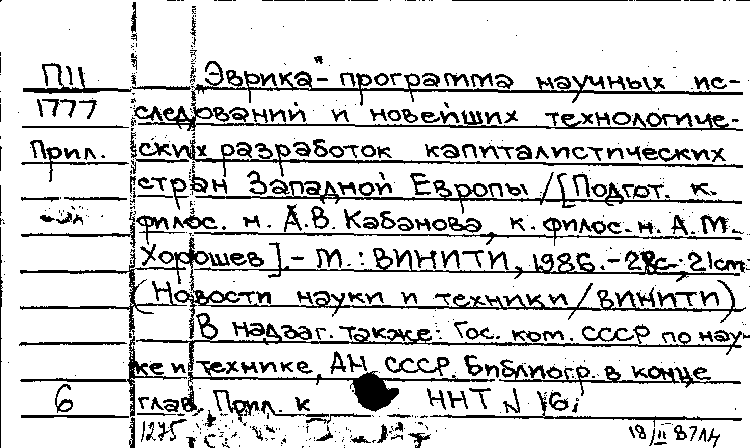 П11 „Эврика"- программа научных ис-
1777 следований и новейших технологиче-
Прил. ских разработок капиталистических
стран Западной Европы/[Подгот. к.
филос. н. А.В. Кабанова, к. филос. н. А.М.
Хорошев].- М.: ВИНИТИ, 1986.-28с.; 21см
(Новости науки и техники/ВИНИТИ)
В надзаг. также: Гос. ком. СССР по нау-
ке и технике, АН СССР. Библиогр. в конце
6 глав. Прил. к ННТ N 16.
1275 18/II 87